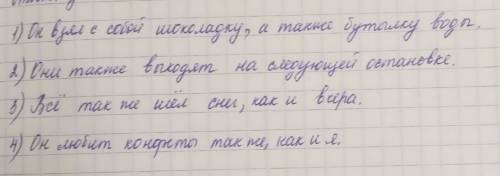 1) Он взял с собой шоколадку, а также бутылку воды.
2) Они также выходят на следующей остановке.
3) Всё так же шёл снег, как и вчера.
4) Он любит конфеты так же, как и я.